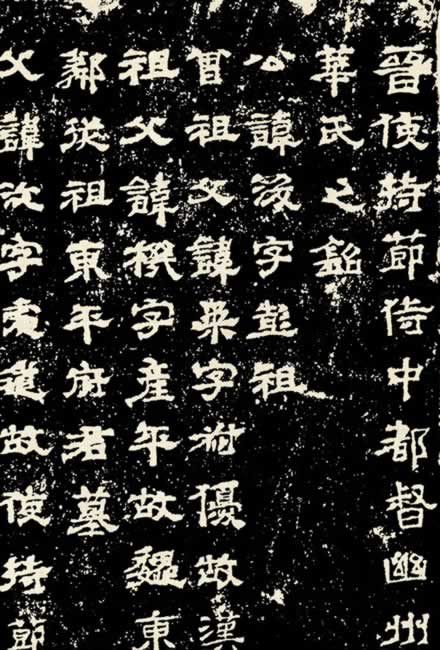 晉使持節侍中都督幽州
華氏之銘
公諱浚字彭祖
曾祖父諱柔字叔優故漢
祖父諱機字產平故魏東
鄰從祖東平府君墓
父諱沈字處道故使持節